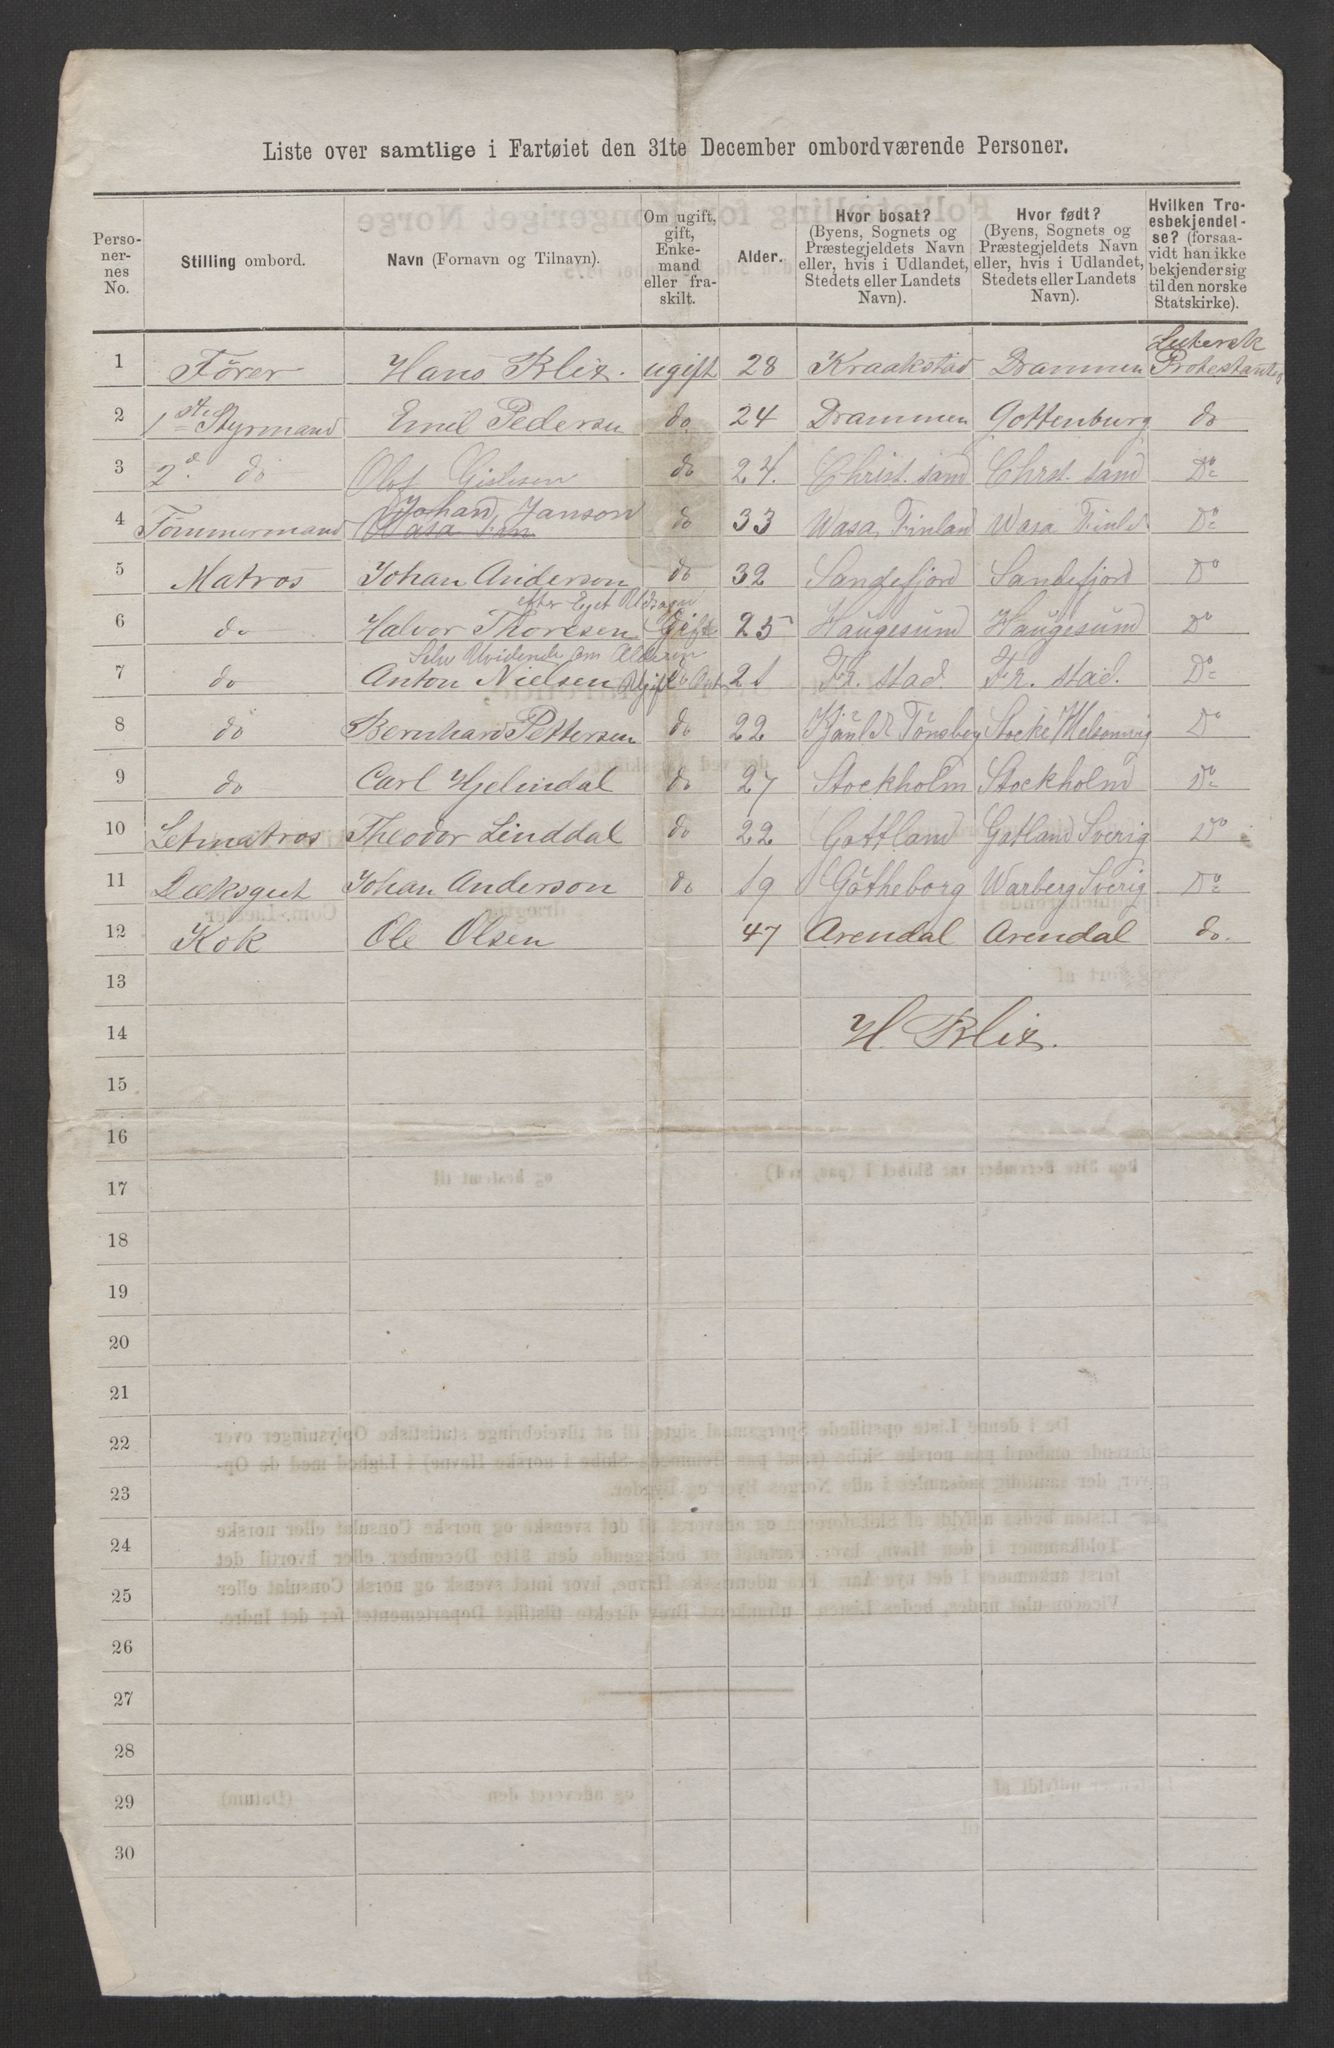 Liste over samtlige i Fartøiet den 31te December ombordværende Personer.
Perso-
ner-
nes
No.
Stilling ombord.
Navn (Fornavn og Tilnavn).
Om ugift,
gift,
Enke-
mand
eller fra-
skilt.
Alder.
Hvor bosat?
(Byens, Sognets og
Præstegjeldets Navn
eller, hvis i Udlandet,
Stedets eller Landets
Navn).
Hvor født?
(Byens, Sognets og
Præstegjeldets Navn
eller, hvis i Udlandet,
Stedets eller Landets
Navn).
Hvilken Tro-
esbekjendel-
se? (forsaa-
vidt han ikke
bekjender sig
til den norske
Statskirke).
1 Förer Hans Blix. ugift 28 Kraakstad Drammen Lutersk Protestantisk
2 1ste Styrmand Emil Pedersen do 24 Drammen Gottenburg do
3 2d. do Olof Gislesen do 24. Christ. sand Chrst. sand Do
4 Tømmermand Johan Janson do 33 Wasa, Finland Wasa Finld Do
5 Matros Johan Anderson do 32 Sandefjord Sandefjord Do
efter Eget Udsagn
6 do Halvor Thoresen Gift 25 Haugesund Haugesund Do
Selv Uvidende om Alderen
7 do Anton Nielsen Ugift 21 Fr. stad. Fr. stad. Do
8 do Bernhard Pettersen do 22 Tönsberg Stocke Melsomvig Do
9 do Carl Hjelmdal do 27 Stockholm Stockholm Do
10 Letmatros Theodor Linddal do 22 Gottland Gotland Sverig Do
11 Dæksgut Johan Anderson do 19 Götheborg Warberg Sverig Do
12 Kok Ole Olsen 47 Arendal Arendal do.
13
14 H. Blix.
15
16
17
18
19
20
21
22
23
24
25
26
27
28
29
30